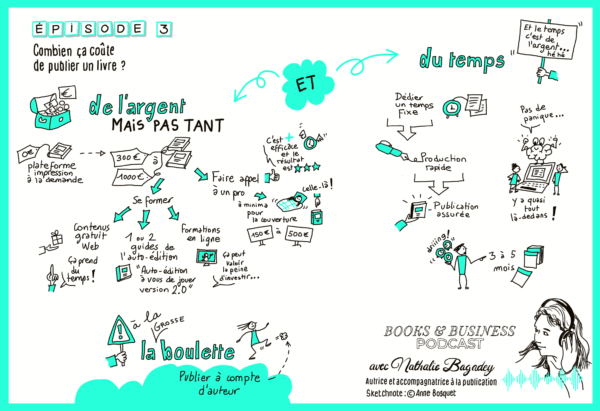 ÉPISODE 3
Combien ça coûte
de publier un livre ?
de l'argent
MAIS PAS TANT
ET
du temps
"Et le temps
c'est de
l'argent...
hé hé
0€
plateforme
impression
à la demande
300€
à
1000€
Se former
Contenus
gratuit
Web
Ça prend
du
temps !
1 ou 2
guides de
l'auto-édition
"Auto-édition
à vous de jouer
version 2.0"
Formations
en ligne
Ça peut
valoir
la peine
d'investir...
Faire appel
à un pro
C'est +
efficace
et le
résultat
est
à minima
pour la
couverture
celle-là !
150€
à
500€
Dédier
un temps
fixe
Production
rapide
Publication
assurée
Pas de
panique...
Y a quasi
tout
là-dedans !
3 à 5
mois
à la
GROSSE
la boulette
Publier à compte
d'auteur
BOOKS & BUSINESS
PODCAST
avec Nathalie Bagadey
Autrice et accompagnatrice à la publication
Sketchnote : © Anne Bosquet